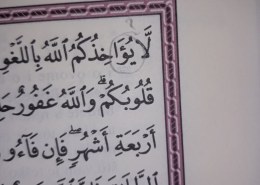 لَّا يُؤَاخِذُكُمُ ٱللَّهُ بِٱللَّغْوِ
قُلُوبُكُمْ ۗ وَٱللَّهُ غَفُورٌ
أَرْبَعَةِ أَشْهُرٍ ۖ فَإِن فَآءُو